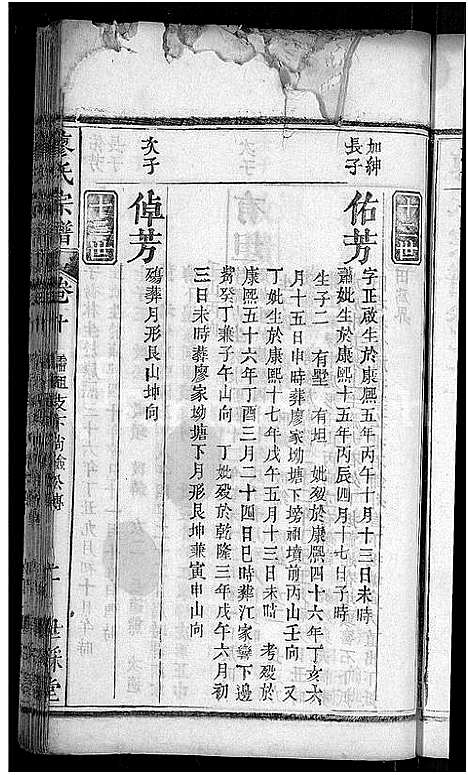 十三世
加紳
長子
佑芳
字正啟生於康熙五年丙午十月十三日未時
蕭妣生於康熙十五年丙辰四月十七日子時
生子二 有墅 有坦 妣歿於康熙四十六年丁亥六
月十五日申時葬廖家坳塘下塝祖墳前丙山壬向 又
丁妣生於康熙十七年戊午五月十三日未時 考歿於
康熙五十六年丁酉三月二十四日巳時葬江家寮下邊
癸丁兼子午山向 丁妣歿於乾隆三年戊午六月初
三日未時葬廖家坳塘下月形艮坤兼寅申山向
十三世
次子
倬芳
殤葬月形艮山坤向
氏宗譜
卷十
世綵堂